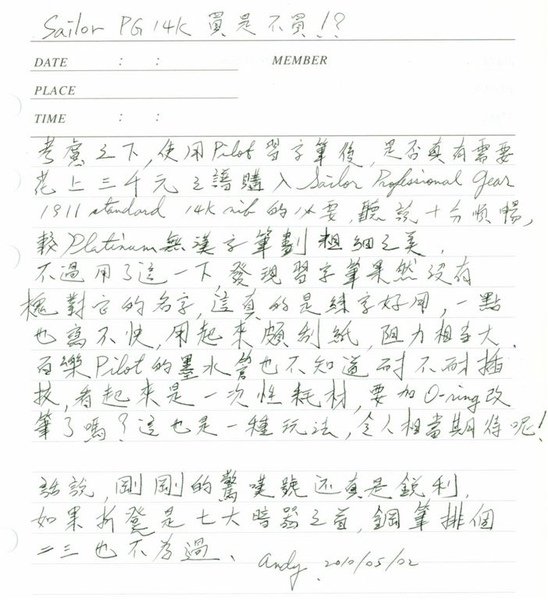 Sailor PG 14K 買是不買!?
DATE : :
MEMBER
PLACE
TIME : :
考慮之下,使用Pilot習字筆後,是否真有需要
花上三千元之譜購入Sailor Professional Gear
1911 standard 14k nib的必要,聽說十分順暢,
較Platinum無漢字筆劃粗細之美.
不過用了這一下,發現習字筆果然沒有
愧對它的名字,這真的是練字好用,一點
也寫不快,用起來頗刮紙,阻力相當大.
百樂Pilot的墨水管也不知道耐不耐插
拔,看起來是一次性耗材,要加O-ring改
筆了嗎?這也是一種玩法,令人相當期待呢!
話說,剛剛的驚嘆號還真是銳利,
如果折凳是七大暗器之首,鋼筆排個
二三也不為過.
andy. 2010/05/02